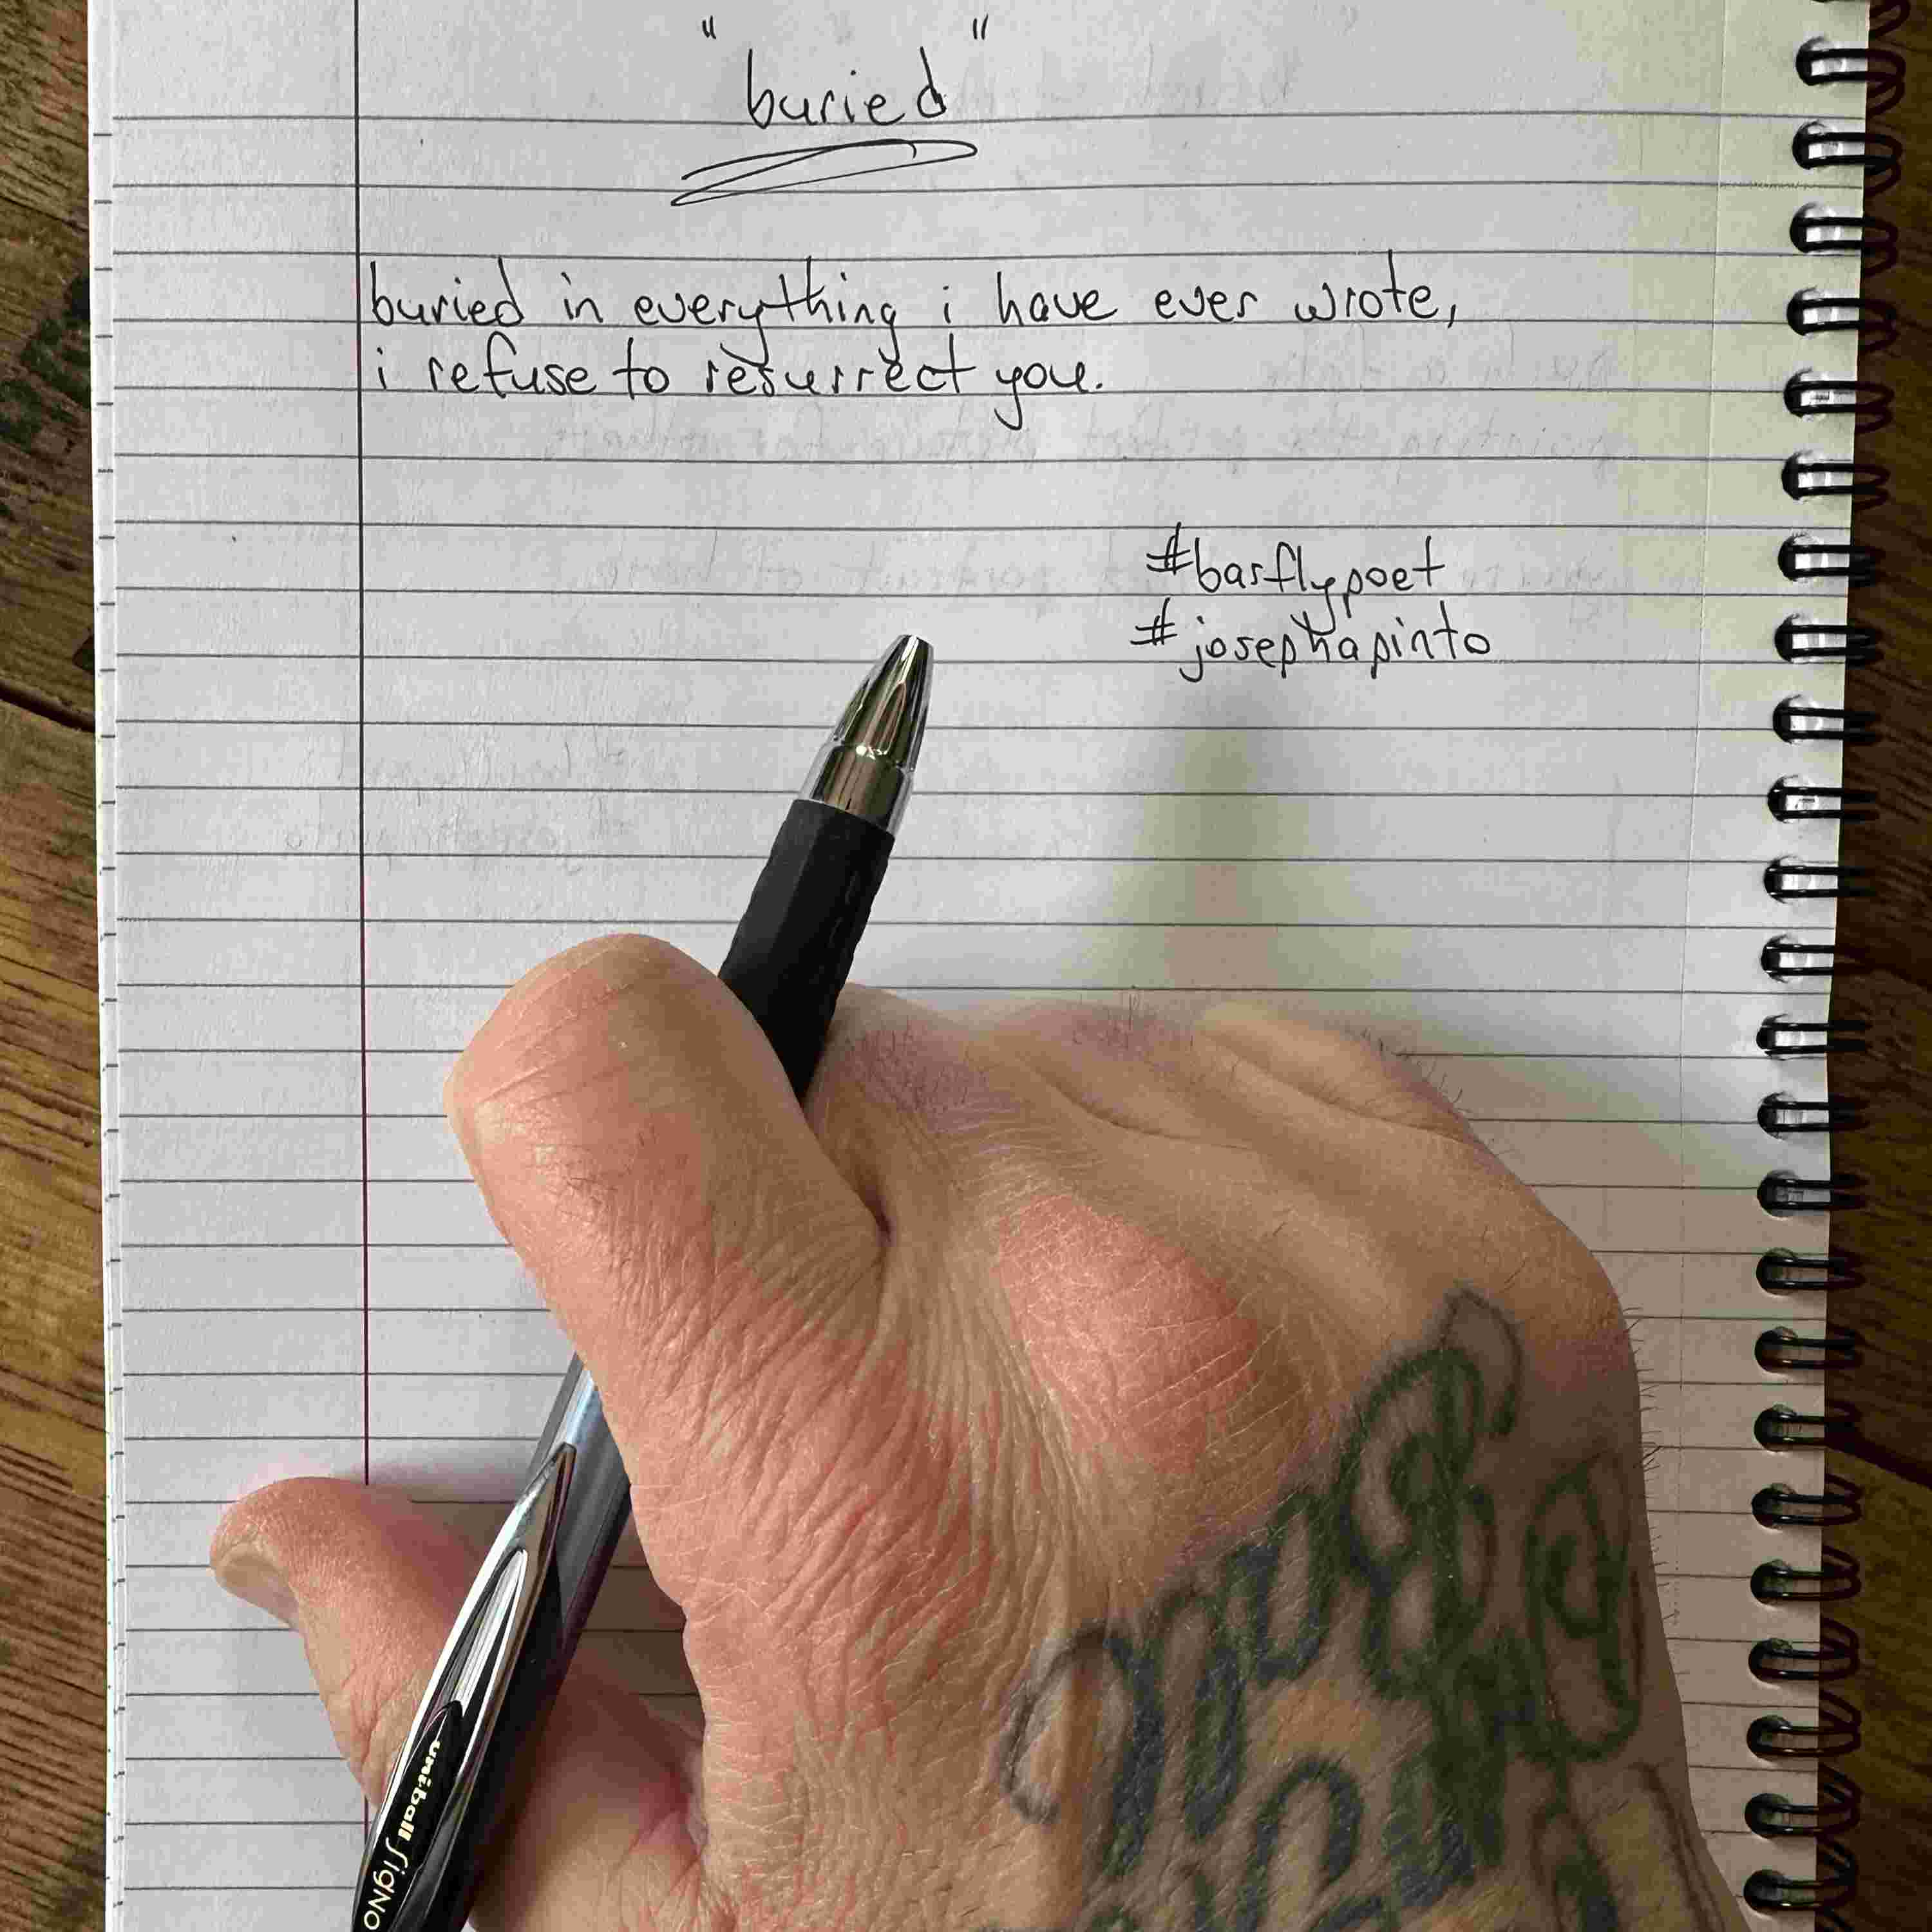 "buried"
buried in everything i have ever wrote,
i refuse to resurrect you.
#barflypoet
#josephapinto
uniball SigNO